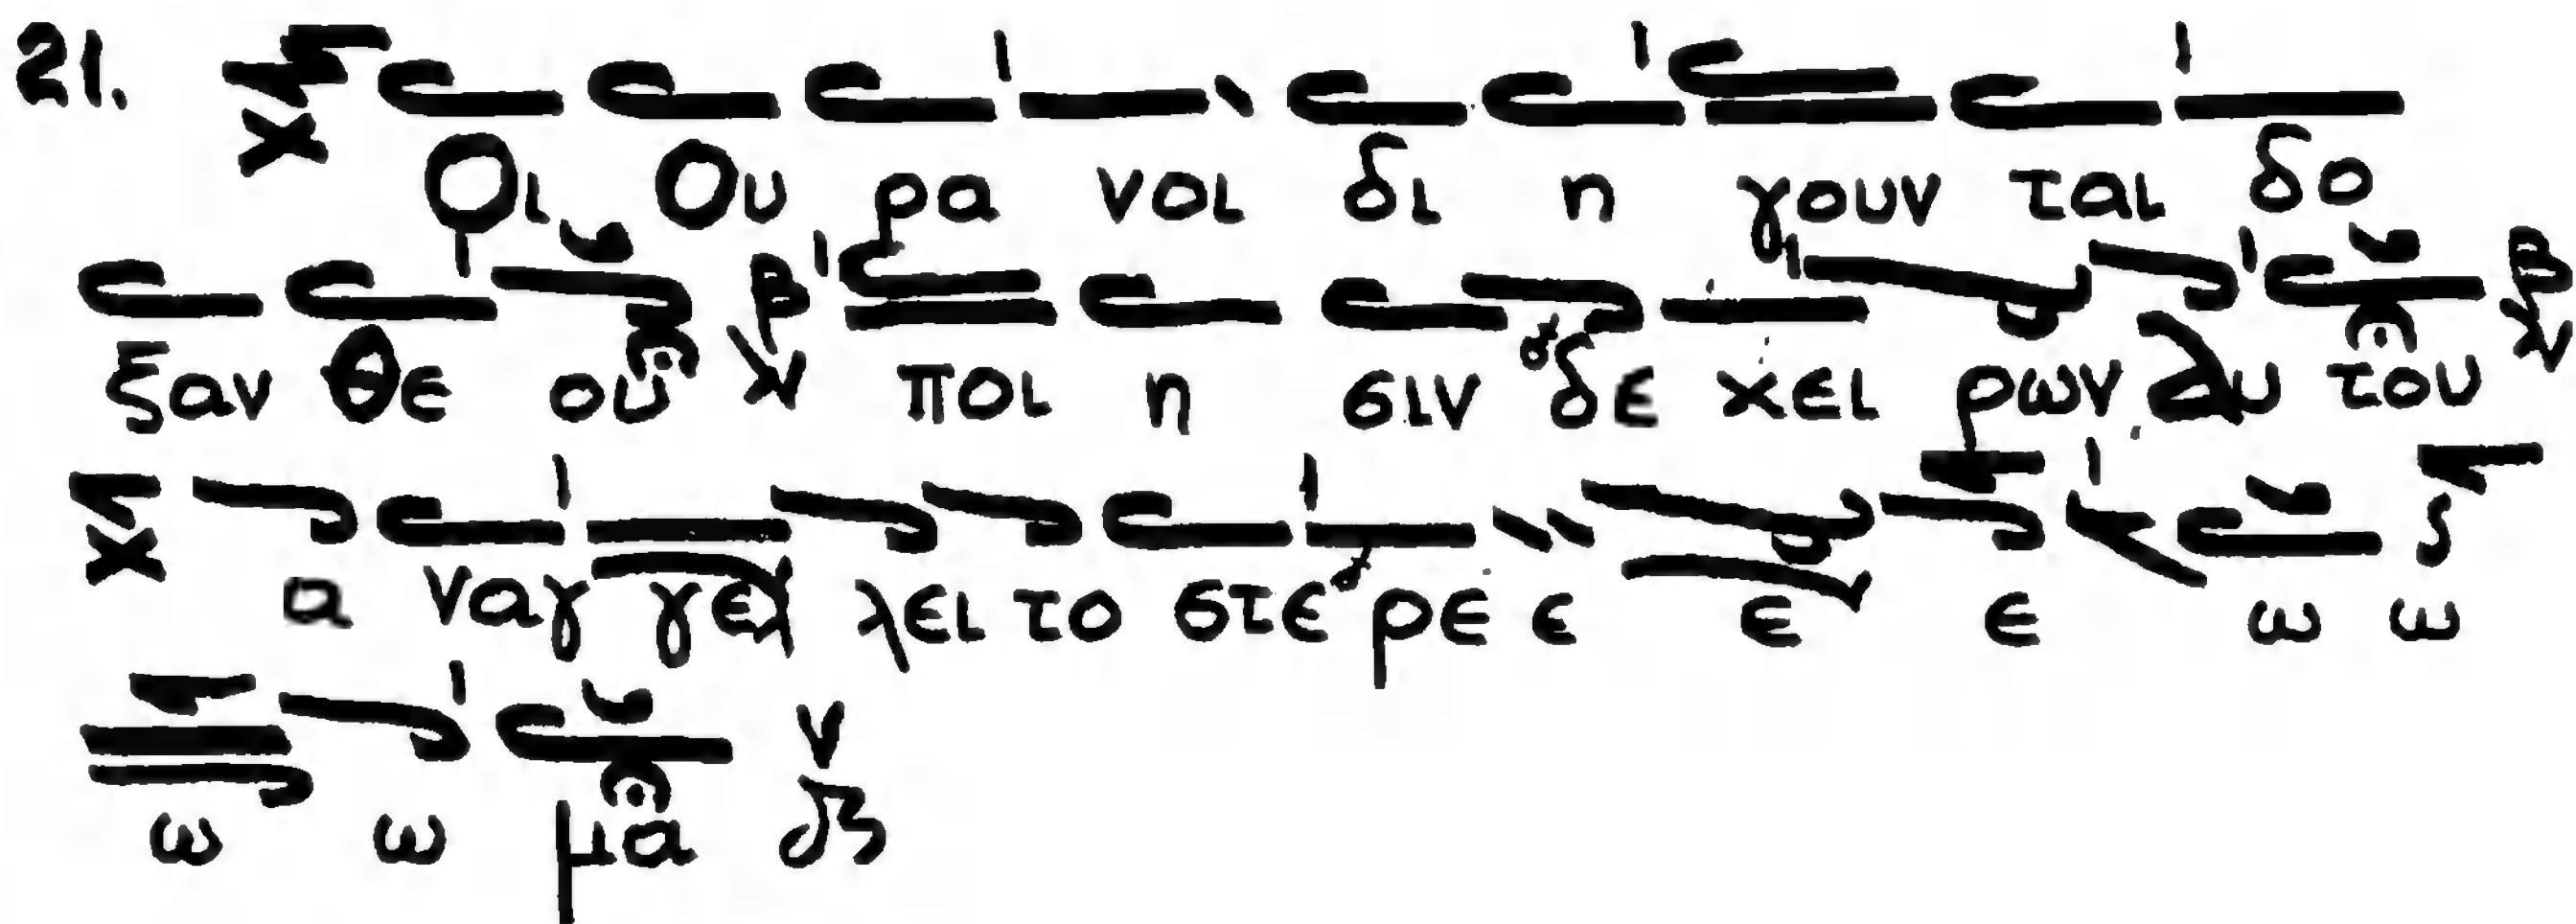 21. Οι Ου ρα νοι δι η γουν ται δο
ξαν θε ου ποι η σιν δε χει ρων αυ του
α ναγ γελ λει το στε ρε ε ε ε ω ω
ω ω μα